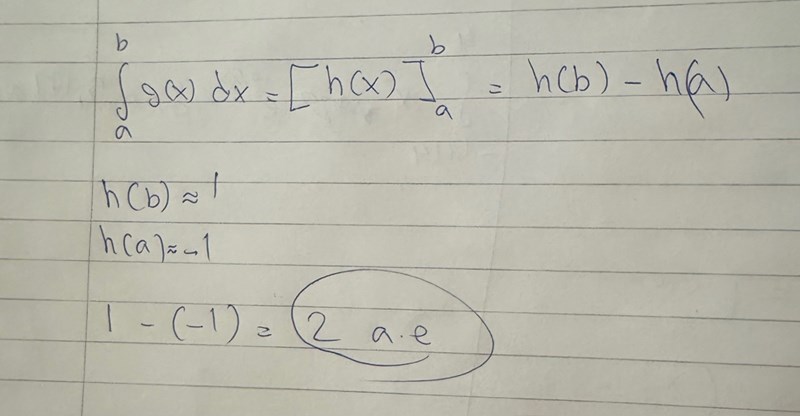 ∫ₐᵇ g(x) dx = [h(x)]ₐᵇ = h(b) - h(a)
h(b) ≈ 1
h(a) ≈ -1
1 - (-1) = 2 a.e